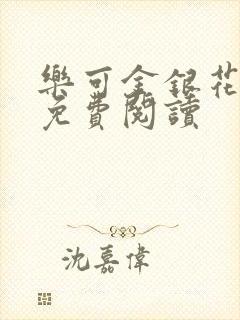 樂可金銀花
免費閱讀
沈嘉偉